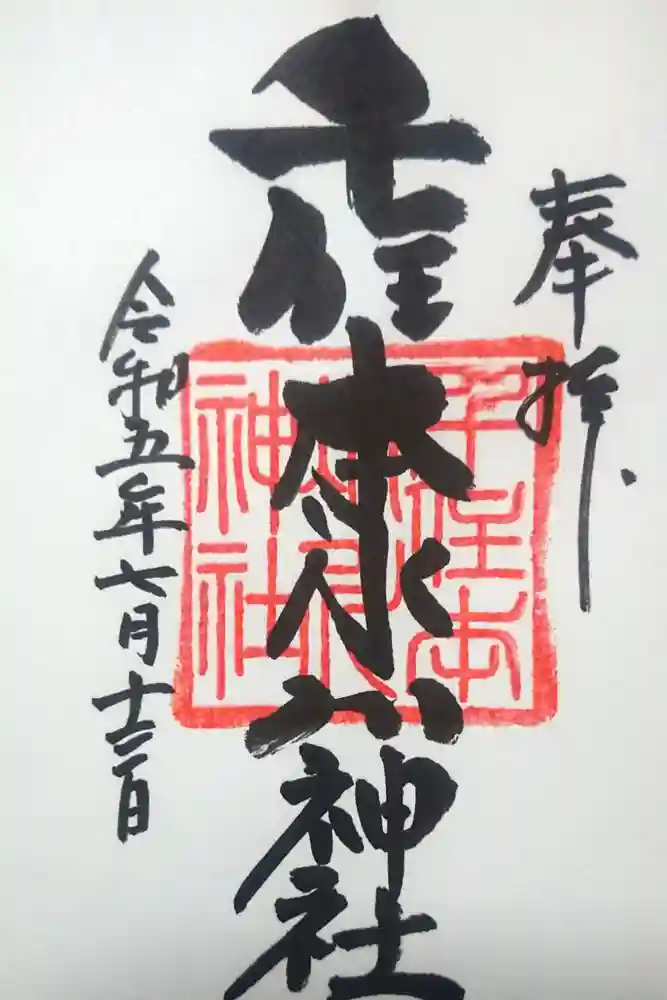 奉拝
千住本氷川神社
令和五年七月十二日
千住本
神社